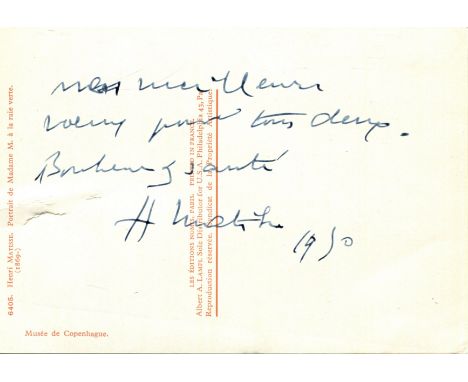 mes meilleurs
voeux pour tous deux.
Bonheur & santé
H Matisse 1950
6406. HENRI MATISSE. Portrait de Madame M. à la raie verte.
(1869-)
LES ÉDITIONS NOMIS, PARIS. PRINTED IN FRANCE
Albert A. LAMPL Sole Distributor for U.S.A. Philadelphia 43, Pa.
Reproduction réservée. Syndicat de la Propriété Artistique.
Musée de Copenhague.